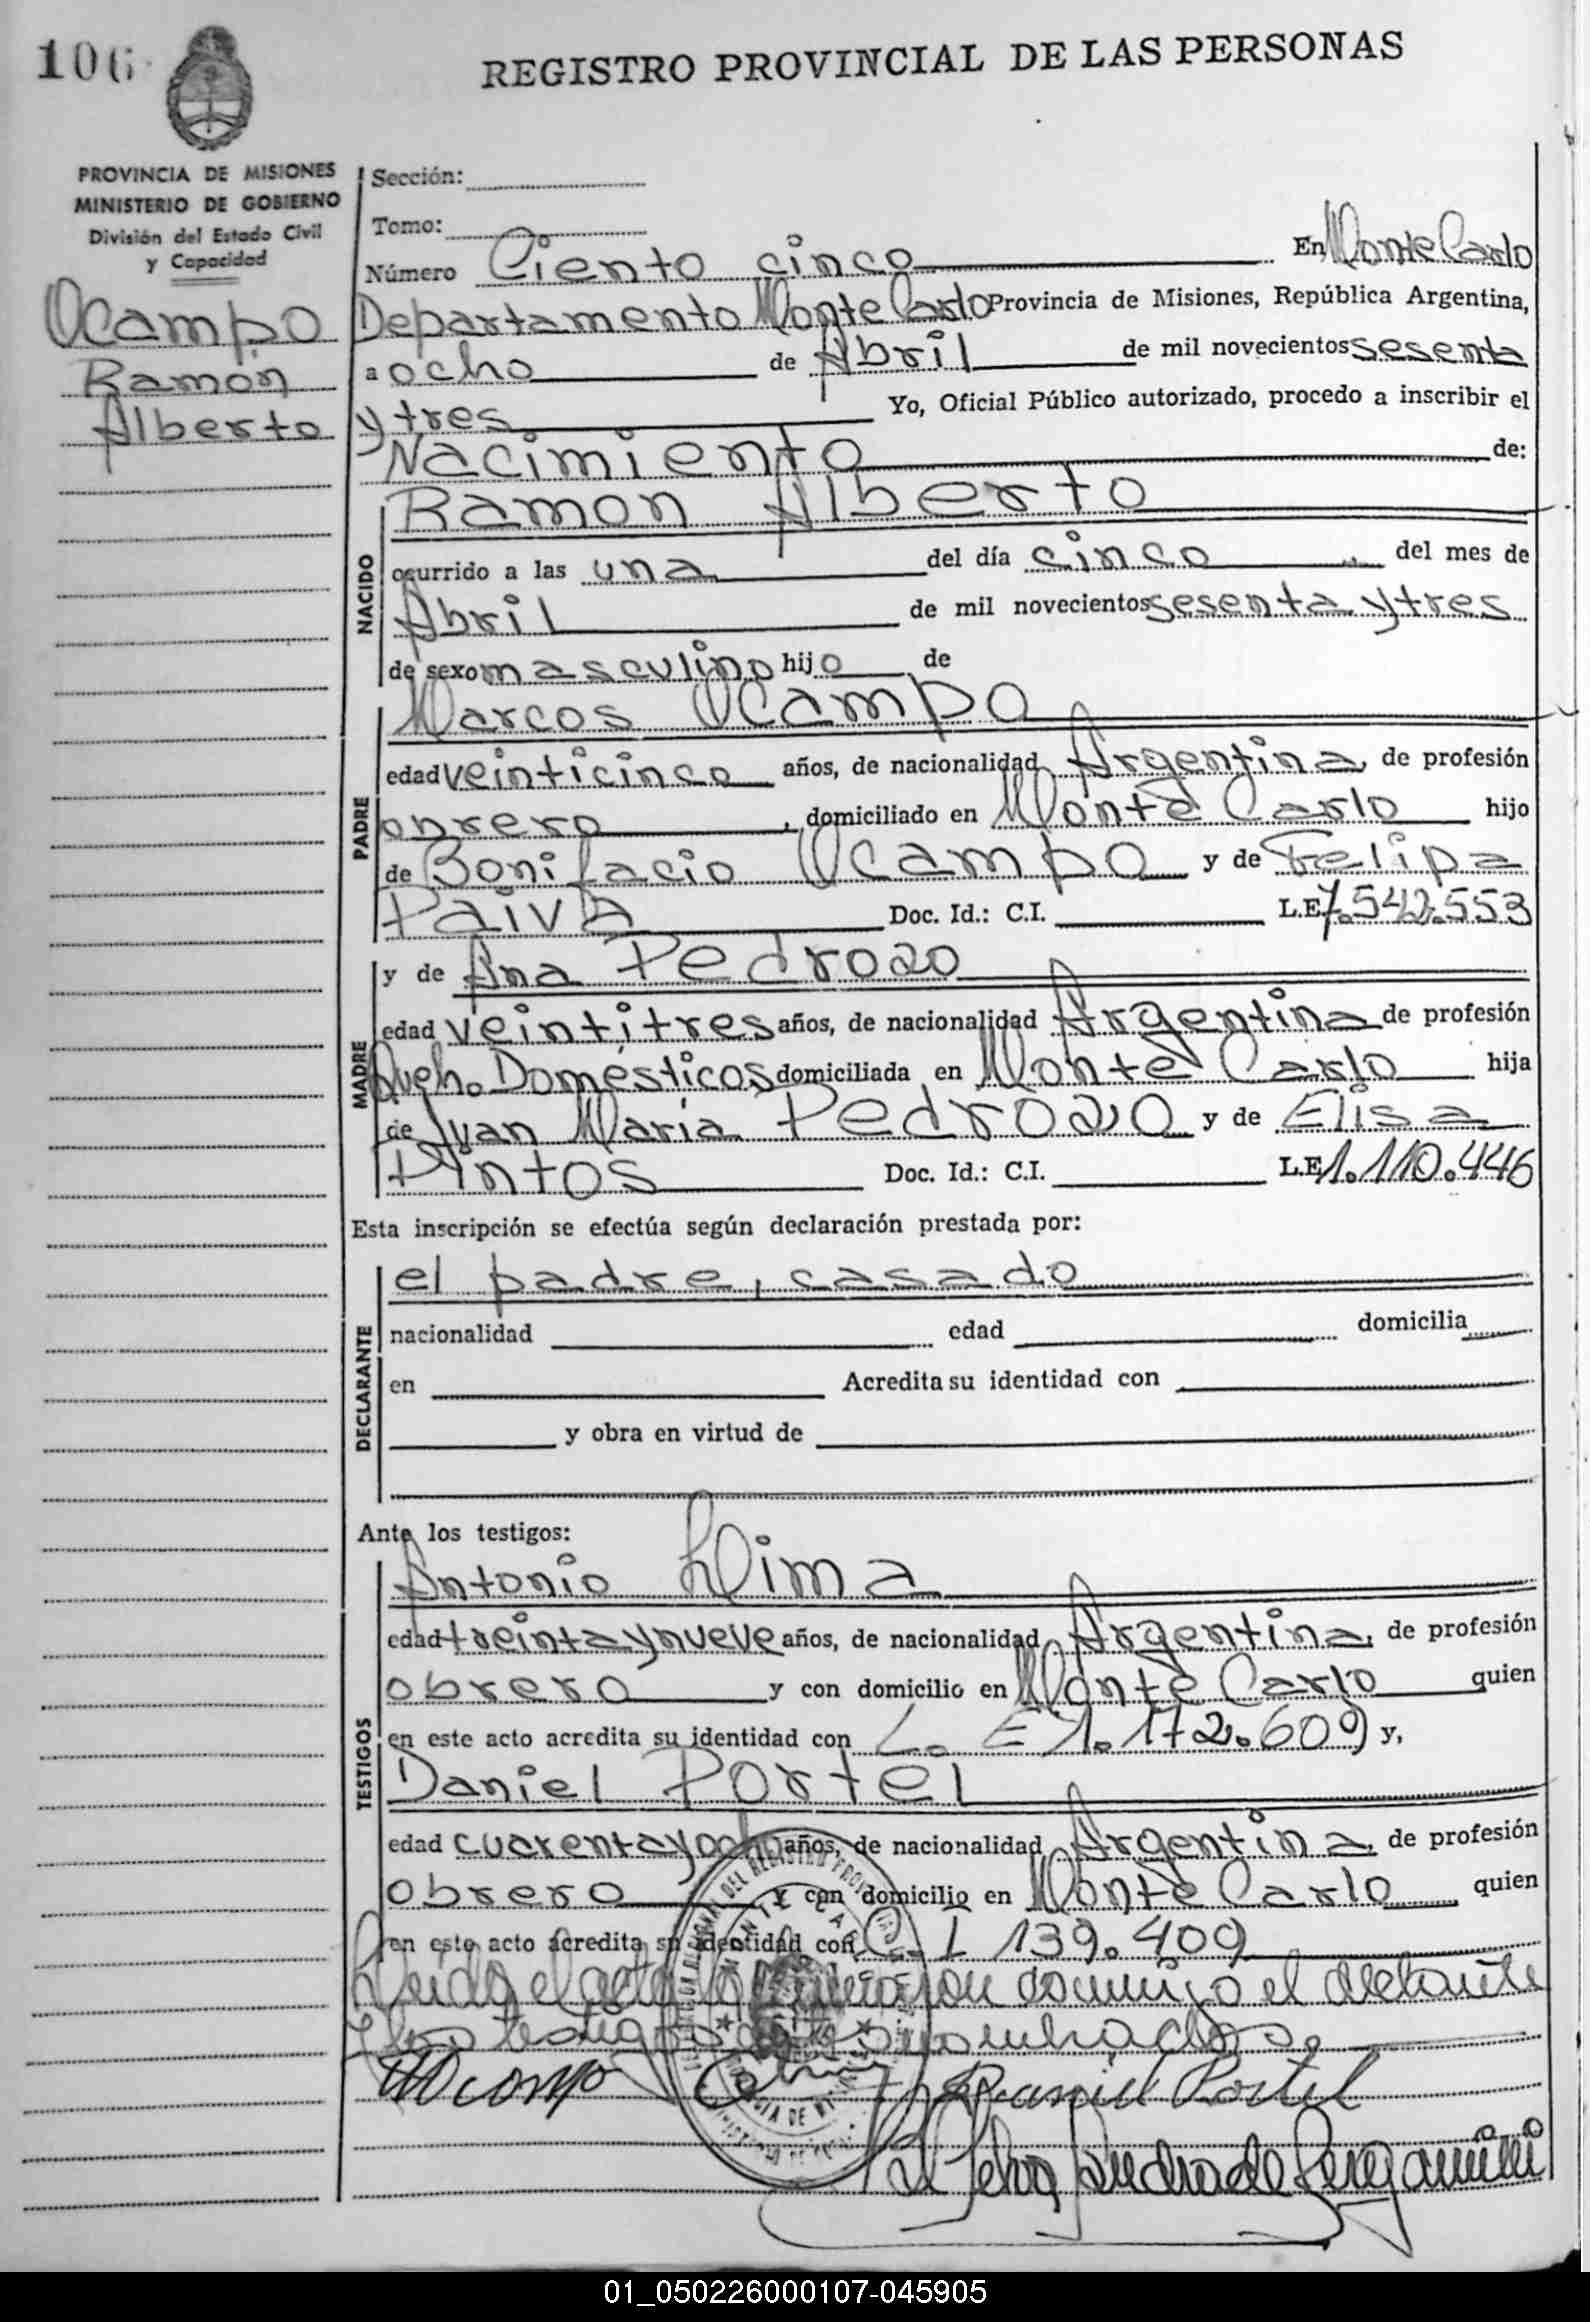 106
REGISTRO PROVINCIAL DE LAS PERSONAS
PROVINCIA DE MISIONES
MINISTERIO DE GOBIERNO
División del Estado Civil
y Capacidad
Ocampo
Ramón
Alberto
Sección:
Tomo:
Número Ciento cinco En Monte Carlo
Departamento Monte Carlo Provincia de Misiones, República Argentina,
a ocho de Abril de mil novecientos sesenta
y tres Yo, Oficial Público autorizado, procedo a inscribir el
Nacimiento de:
NACIDO
Ramon Alberto
ocurrido a las una del día cinco del mes de
Abril de mil novecientos sesenta y tres
de sexo masculino hijo de
PADRE
Marcos Ocampo
edad veinticinco años, de nacionalidad Argentina de profesión
obrero, domiciliado en Monte Carlo hijo
de Bonifacio Ocampo y de Felipa
Paiva Doc. Id.: C.I. L.E 7.542.553
MADRE
y de Ana Pedrozo
edad veintitres años, de nacionalidad Argentina de profesión
Queh. Domésticos domiciliada en Monte Carlo hija
de Juan María Pedrozo y de Elisa
Pintos Doc. Id.: C.I. L.E 1.110.446
Esta inscripción se efectúa según declaración prestada por:
DECLARANTE
el padre, casado
nacionalidad edad domicilia
en Acredita su identidad con
y obra en virtud de
Ante los testigos:
TESTIGOS
Antonio Lima
edad treinta y nueve años, de nacionalidad Argentina, de profesión
obrero y con domicilio en Monte Carlo quien
en este acto acredita su identidad con L. E 1.172.609 y,
Daniel Portel
edad cuarenta y ocho años, de nacionalidad Argentina de profesión
obrero y con domicilio en Monte Carlo quien
en este acto acredita su identidad con C. I 139.409
Leida el acta la firmaron conmigo el declarante
y los testigos
Daniel Portel
01_050226000107-045905